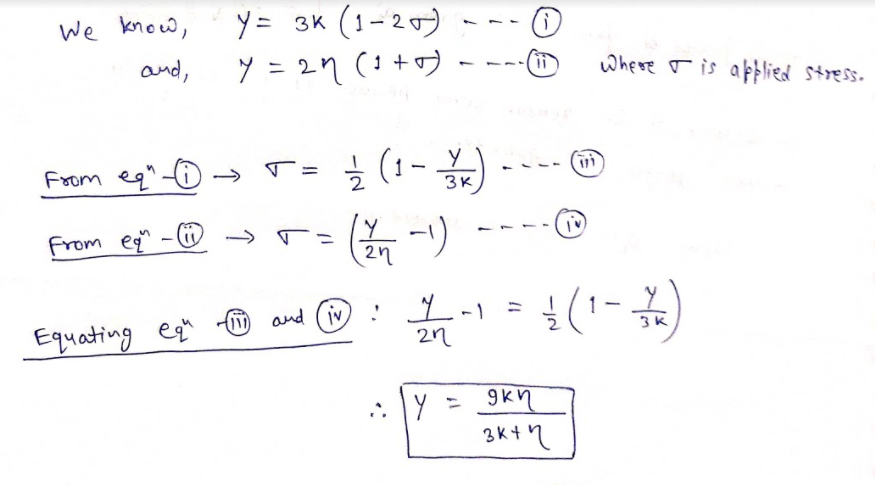 We know, Y = 3K (1-2σ) ---- (i)
and, Y = 2η (1+σ) ---- (ii) Where σ is applied stress.
From eqⁿ-(i) → σ = 1/2 (1 - Y/3K) ---- (iii)
From eqⁿ-(ii) → σ = (Y/2η -1) ---- (iv)
Equating eqⁿ -(iii) and (iv) : Y/2η -1 = 1/2 (1 - Y/3K)
∴ Y = 9Kη/3K+η